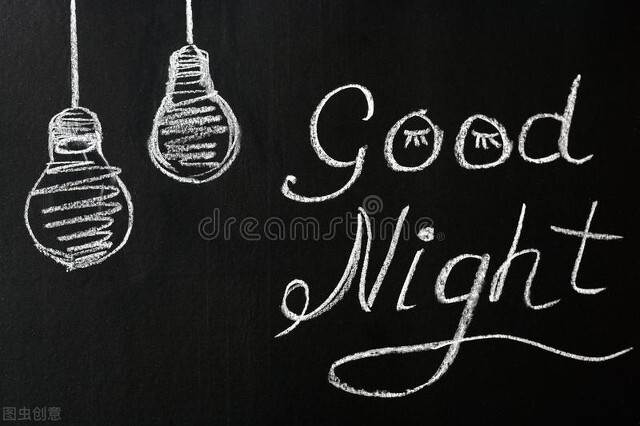 Good
Night
dreamstime.
图虫创意